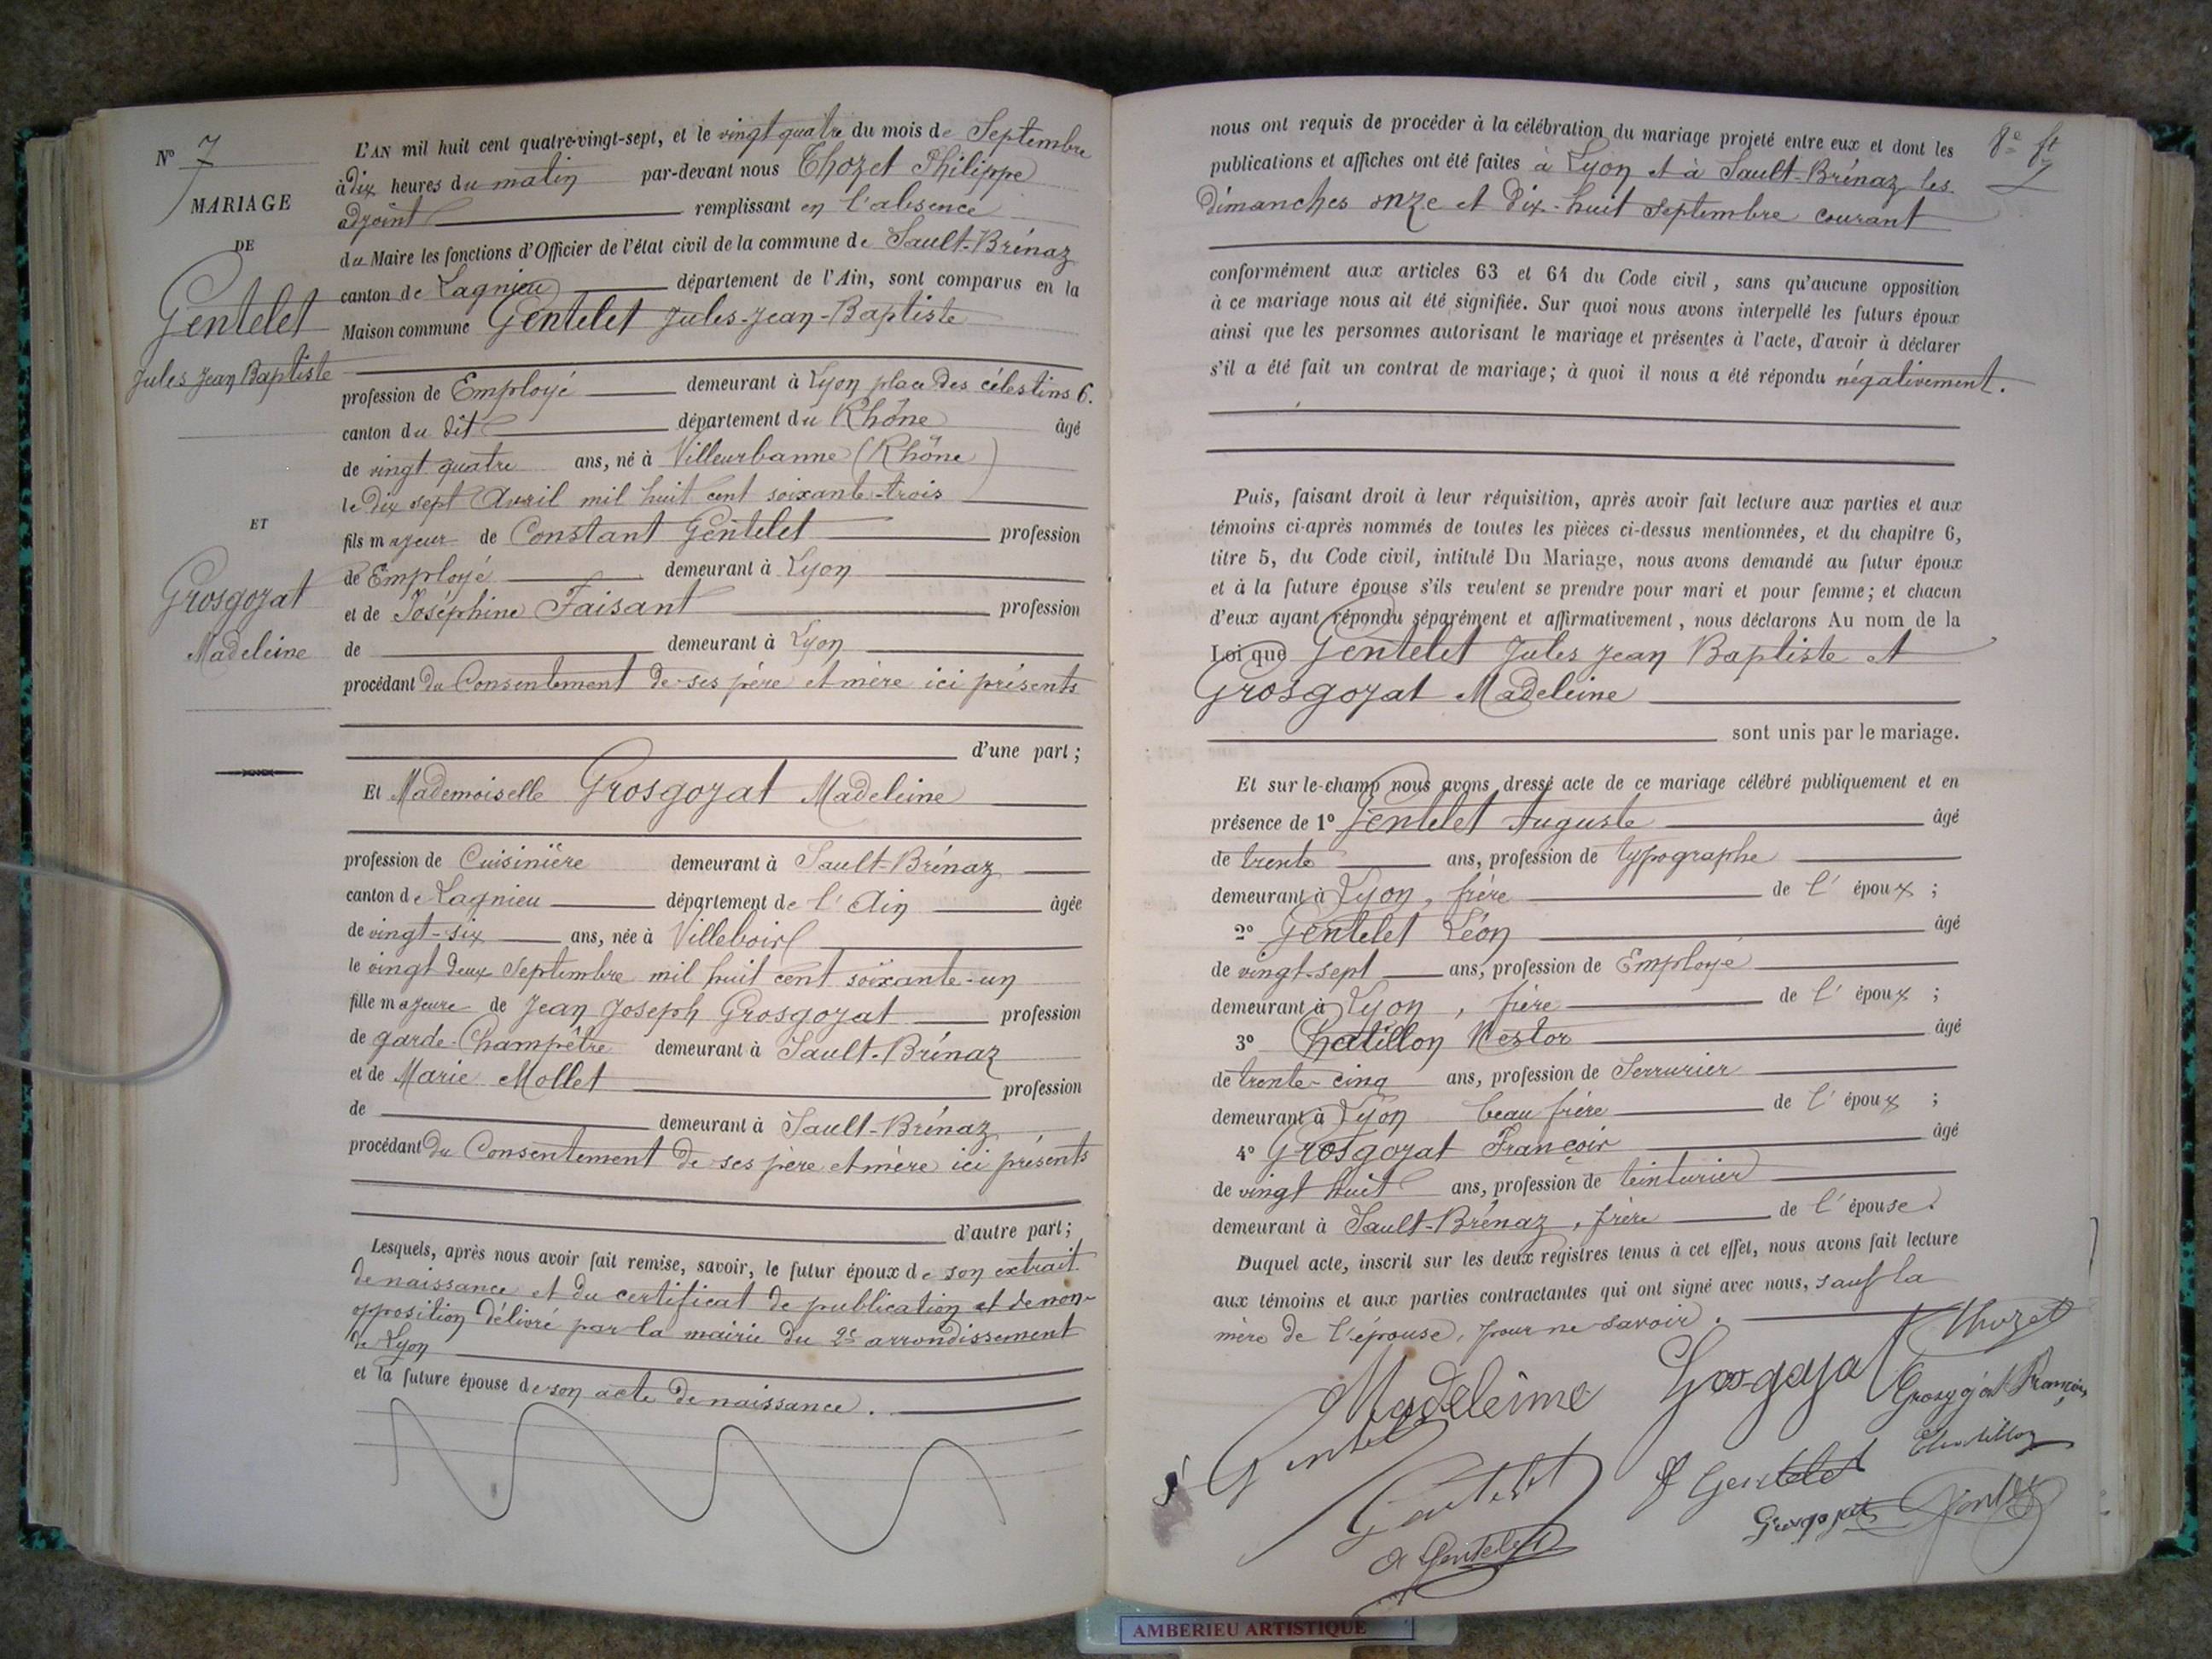 N° 7
MARIAGE
DE
Gentelet
Jules Jean Baptiste
ET
Grosgozat
Madeleine
L'AN mil huit cent quatre-vingt-sept, et le vingt quatre du mois de Septembre
à dix heures du matin par-devant nous Thozet Philippe
adjoint remplissant en l'absence
du Maire les fonctions d'Officier de l'état civil de la commune de Sault-Brénaz
canton de Lagnieu département de l'Ain, sont comparus en la
Maison commune Gentelet Jules-Jean-Baptiste
profession de Employé demeurant à Lyon place des célestins 6.
canton du dit département du Rhône âgé
de vingt quatre ans, né à Villeurbanne (Rhône)
le dix sept Avril mil huit cent soixante-trois
fils majeur de Constant Gentelet profession
de Employé demeurant à Lyon
et de Joséphine Faisant profession
de demeurant à Lyon
procédant du Consentement de ses père et mère ici présents
d'une part;
Et Mademoiselle Grosgozat Madeleine
profession de Cuisinière demeurant à Sault-Brénaz
canton de Lagnieu département de l'Ain âgée
de vingt-six ans, née à Villebois
le vingt deux Septembre mil huit cent soixante-un
fille majeure de Jean Joseph Grosgozat profession
de garde-Champêtre demeurant à Sault-Brénaz
et de Marie Mollet profession
de demeurant à Sault-Brénaz
procédant du Consentement de ses père et mère ici présents
d'autre part;
Lesquels, après nous avoir fait remise, savoir, le futur époux de son extrait
de naissance et du certificat de publication et de non-
opposition délivré par la mairie du 2e arrondissement
de Lyon
et la future épouse de son acte de naissance.
nous ont requis de procéder à la célébration du mariage projeté entre eux et dont les
publications et affiches ont été faites à Lyon et à Sault-Brénaz les
dimanches onze et dix-huit septembre courant
conformément aux articles 63 et 64 du Code civil, sans qu'aucune opposition
à ce mariage nous ait été signifiée. Sur quoi nous avons interpellé les futurs époux
ainsi que les personnes autorisant le mariage et présentes à l'acte, d'avoir à déclarer
s'il a été fait un contrat de mariage; à quoi il nous a été répondu négativement.
Puis, faisant droit à leur réquisition, après avoir fait lecture aux parties et aux
témoins ci-après nommés de toutes les pièces ci-dessus mentionnées, et du chapitre 6,
titre 5, du Code civil, intitulé Du Mariage, nous avons demandé au futur époux
et à la future épouse s'ils veulent se prendre pour mari et pour femme; et chacun
d'eux ayant répondu séparément et affirmativement, nous déclarons Au nom de la
Loi que Gentelet Jules Jean Baptiste et
Grosgozat Madeleine
sont unis par le mariage.
Et sur-le-champ nous avons dressé acte de ce mariage célébré publiquement et en
présence de 1° Gentelet Auguste âgé
de trente ans, profession de typographe
demeurant à Lyon, frère de l'époux;
2° Gentelet Léon âgé
de vingt-sept ans, profession de Employé
demeurant à Lyon, frère de l'époux;
3° Chatillon Nestor âgé
de trente-cinq ans, profession de Serrurier
demeurant à Lyon beau frère de l'époux;
4° Grosgozat François âgé
de vingt huit ans, profession de teinturier
demeurant à Sault-Brénaz, frère de l'épouse.
Duquel acte, inscrit sur les deux registres tenus à cet effet, nous avons fait lecture
aux témoins et aux parties contractantes qui ont signé avec nous, sauf la
mère de l'épouse, pour ne savoir.
Thozet
Madeleine Grosgozat
Grosgozat François
Gentelet
Chatillon
Gentelet
Gentelet
Grosgozat
A Gentelet
AMBERIEU ARTISTIQUE